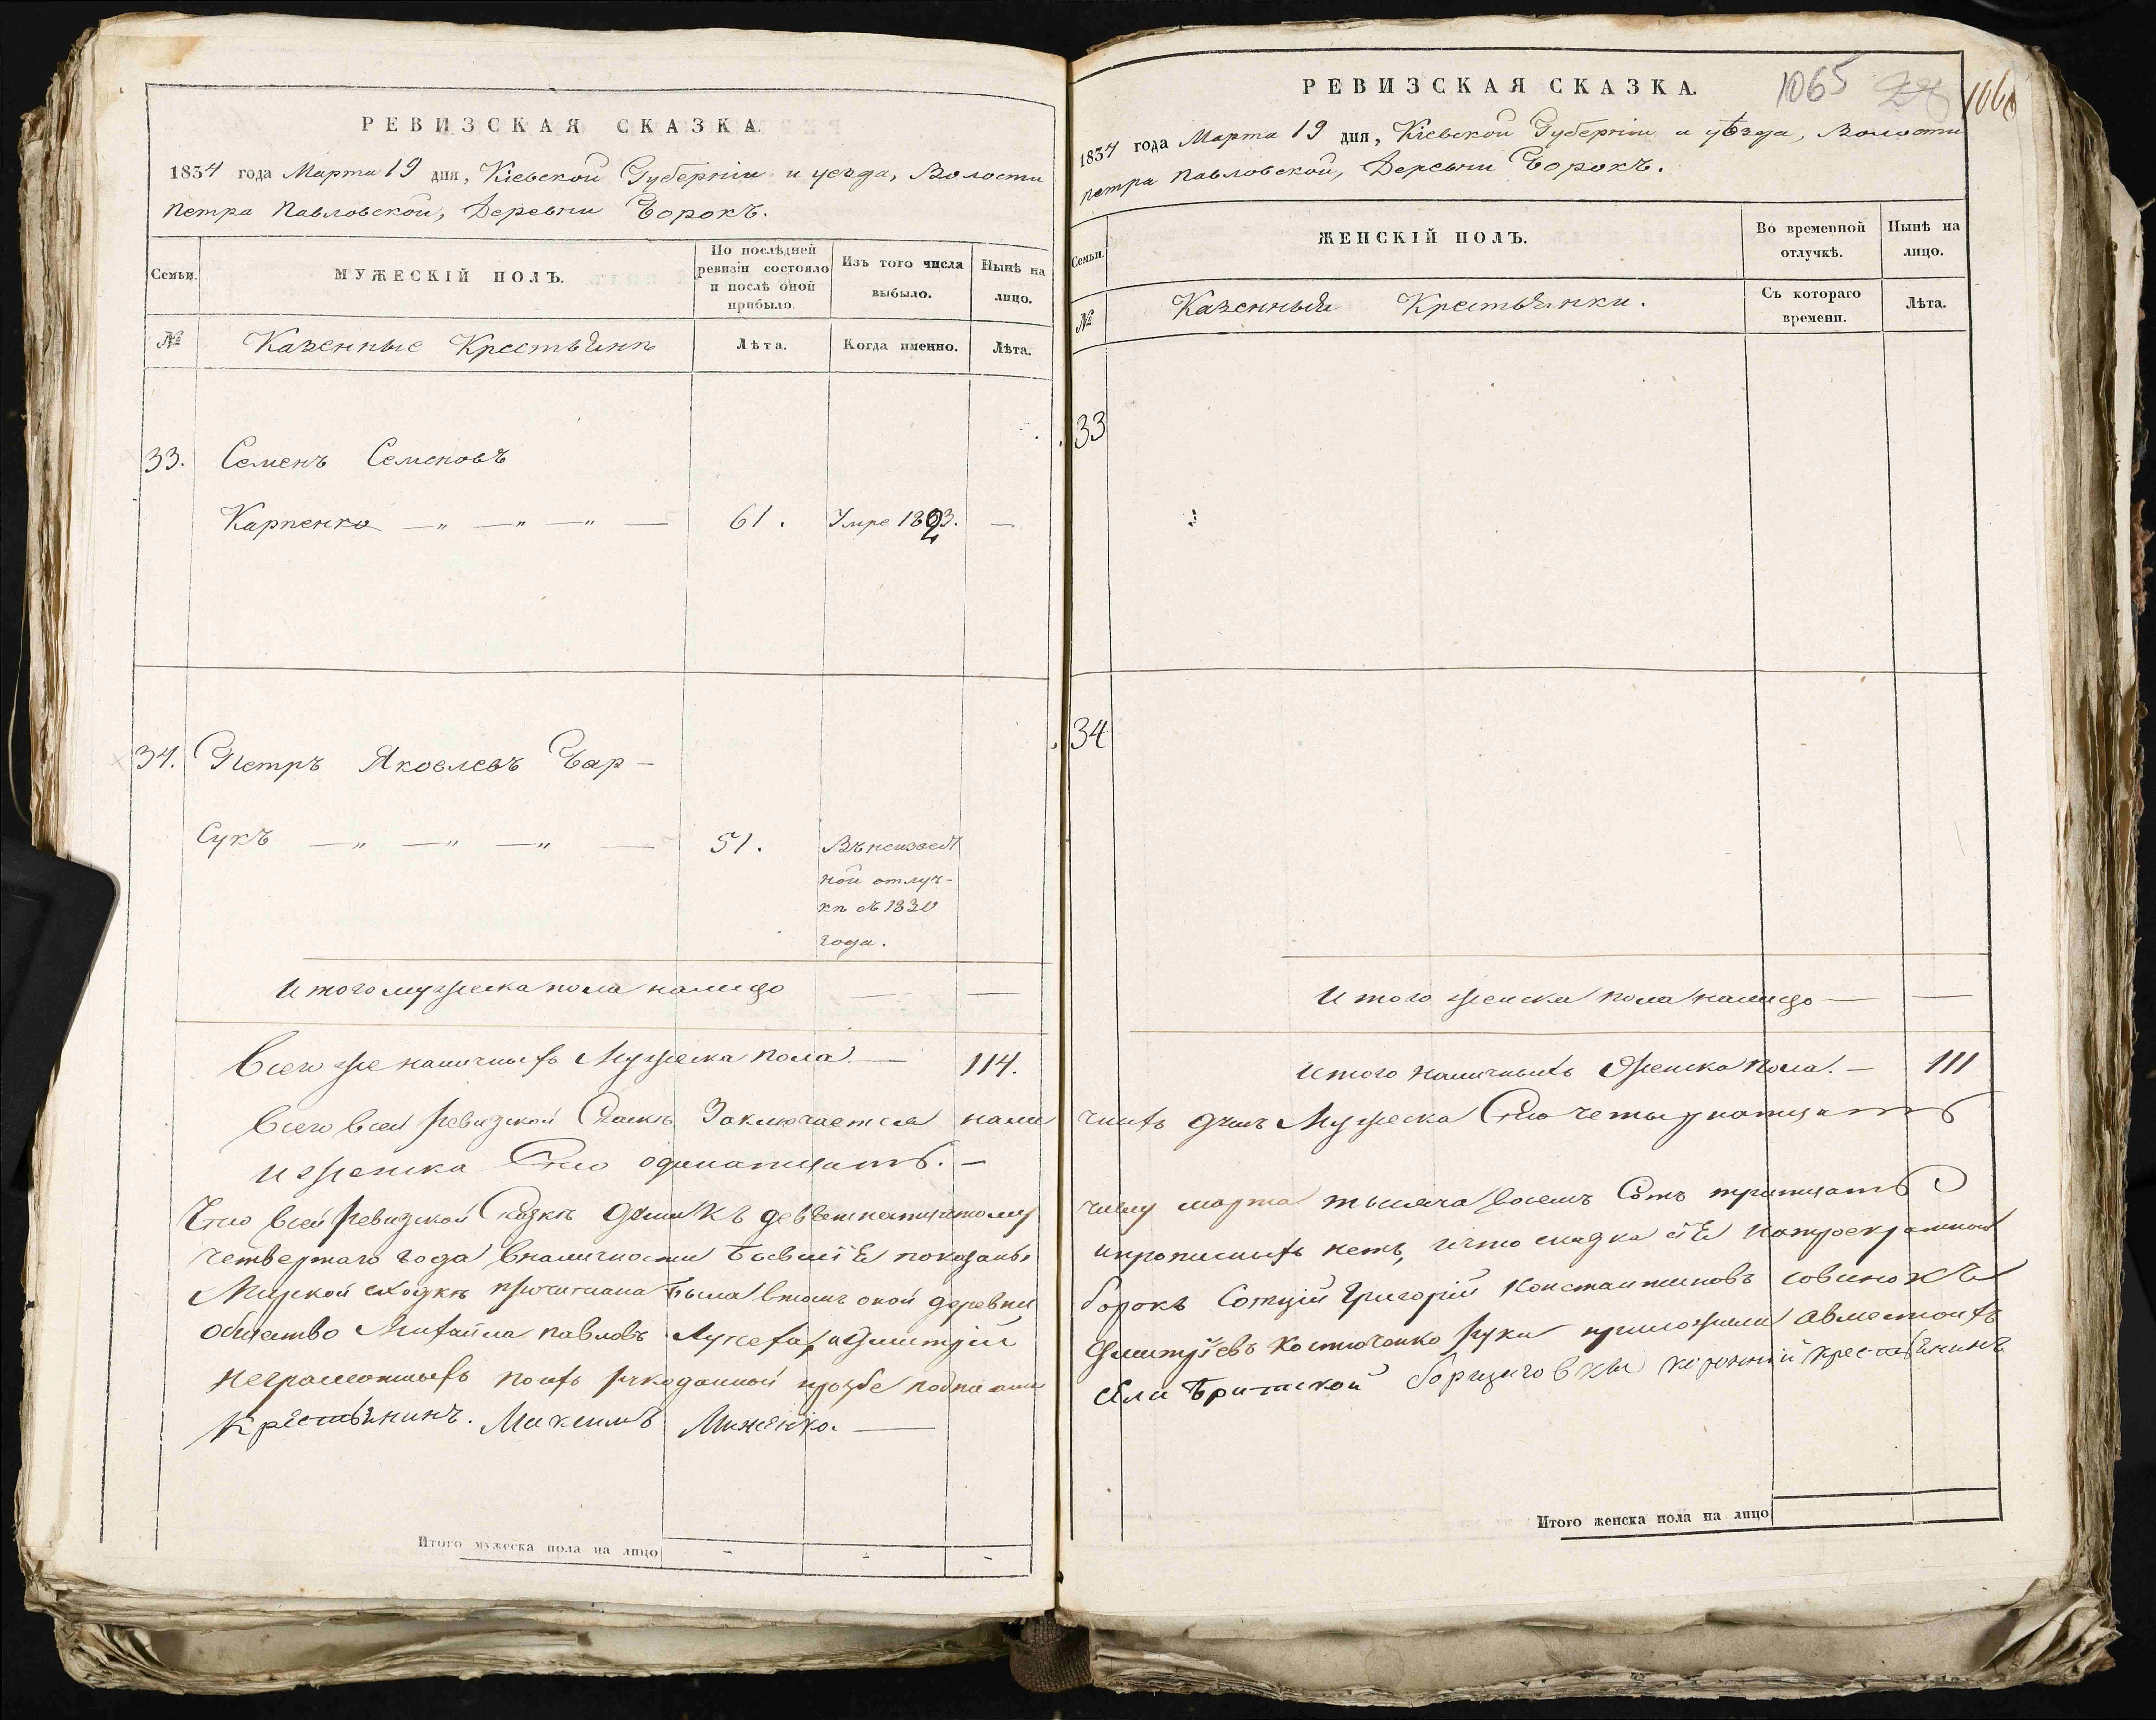 РЕВИЗСКАЯ СКАЗКА.
1834 года Марта 19 дня, Кіевской Губерніи и уезда, Волости
Петра Павловской, Деревни Борокъ.
Семьи.
МУЖЕСКІЙ ПОЛЪ.
По послѣдней
ревизіи состояло
и послѣ оной
прибыло.
Изъ того числа
выбыло.
Нынѣ на
лицо.
№
Казенные Крестьяне
Лѣта.
Когда именно.
Лѣта.
33. Семенъ Семеновъ
Карпенко — „ — „ — „ — 61. Умре 1823. —
34. Петръ Яковлевъ Бар-
сукъ — „ — „ — „ — 51. Въ неизвест
ной отлуч-
кѣ съ 1830
года.
Итого мужеска пола налицо — —
Всего же наличныхъ Мужеска пола — 114.
Всего всей ревизской Сказкѣ Заключается нали
и женска Сто одинатцать. —
Что всей ревизской Сказкѣ души къ девятнатцатому
четвертаго года вналичности бывшіе показаны
Мирской сходкѣ прочитана была втомъ оной деревни
общество Михайла павловъ и Дмитрій
неграмотныхъ поихъ рукоданной прозбе подписали
Крестьянинъ. Максимъ
Итого мужеска пола на лицо - - -
РЕВИЗСКАЯ СКАЗКА.
1065 1066
1834 года Марта 19 дня, Кіевской Губерніи и уѣзда, Волости
петра Павловской, Деревни Борокъ.
Семьи.
ЖЕНСКІЙ ПОЛЪ.
Во временной
отлучкѣ.
Нынѣ на
лицо.
№
Казенныя Крестьянки.
Съ котораго
времени.
Лѣта.
33
34
Итого женска пола налицо — —
Итого наличныхъ Женска пола. — 111
чныхъ душъ Мужеска Сто четырнатцать
числу марта тысяча восемъ Сотъ тритцать
ипрописныхъ нетъ, ичто
борокъ Сотцкій Григорій Константиновъ
Дмитріевъ Костюченко руки приложили авместоихъ
крестьянинъ
Итого женска пола на лицо